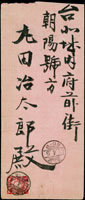 台北城内府前街
朝陽號方
丸田治太郎殿